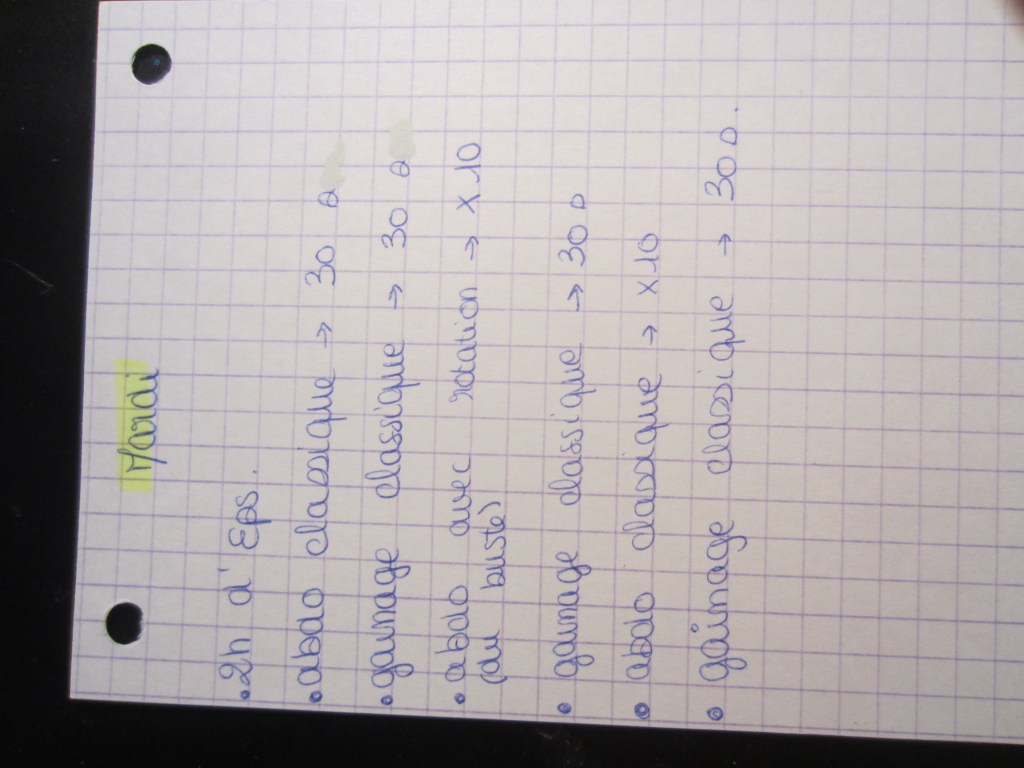 Mardi
• 2h d'Eps.
• abdo classique → 30 s
• gainage classique → 30 s
• abdo avec rotation → x 10
(du buste)
• gainage classique → 30 s
• abdo classique → x 10
• gainage classique → 30 s.